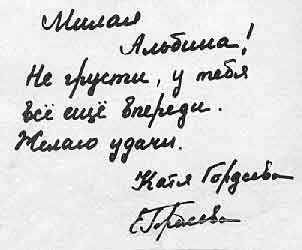 Милая
Альбина!
Не грусти, у тебя
всё ещё впереди.
Желаю удачи.
Катя Гордеева